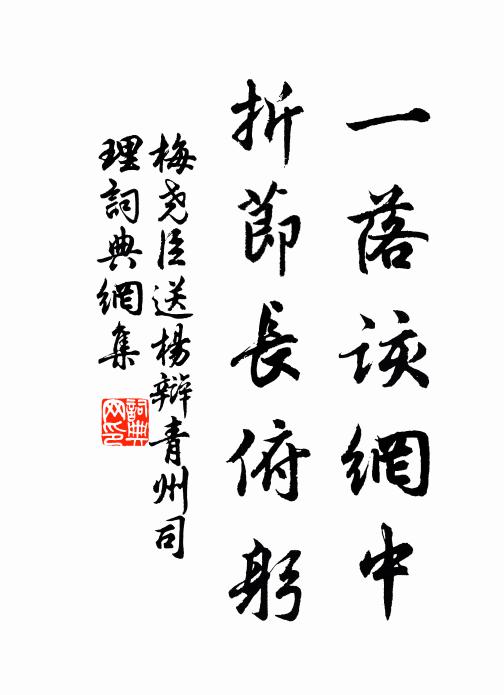 一落該網中
折節長俯躬
梅尧臣送楊辯青州司
理詞典網集
詞典網印